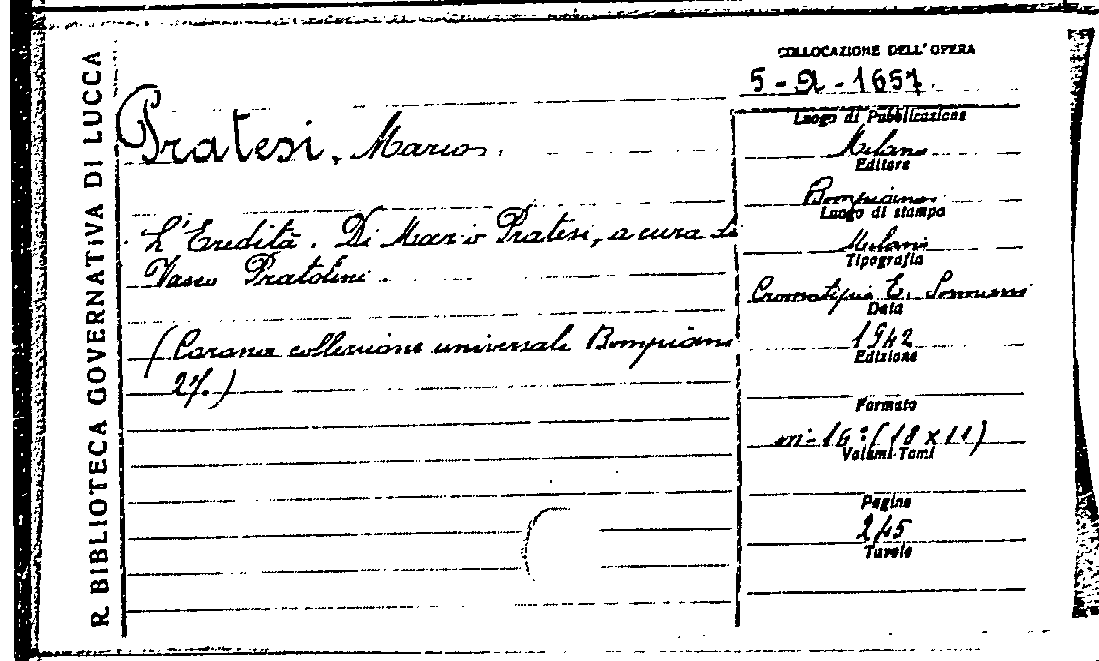 R. BIBLIOTECA GOVERNATIVA DI LUCCA
COLLOCAZIONE DELL'OPERA
5-2-1657.
Pratesi, Mario.
L'Eredità. Di Mario Pratesi, a cura di
Vasco Pratolini.
(Corona collezione universale Bompiani
27.)
Luogo di Pubblicazione
Milano
Editore
Bompiani
Luogo di stampa
Milano
Tipografia
Cromotipia E.
Data
1942
Edizione
Formato
in-16° (18 x 11)
Volumi-Tomi
Pagine
245
Tavole